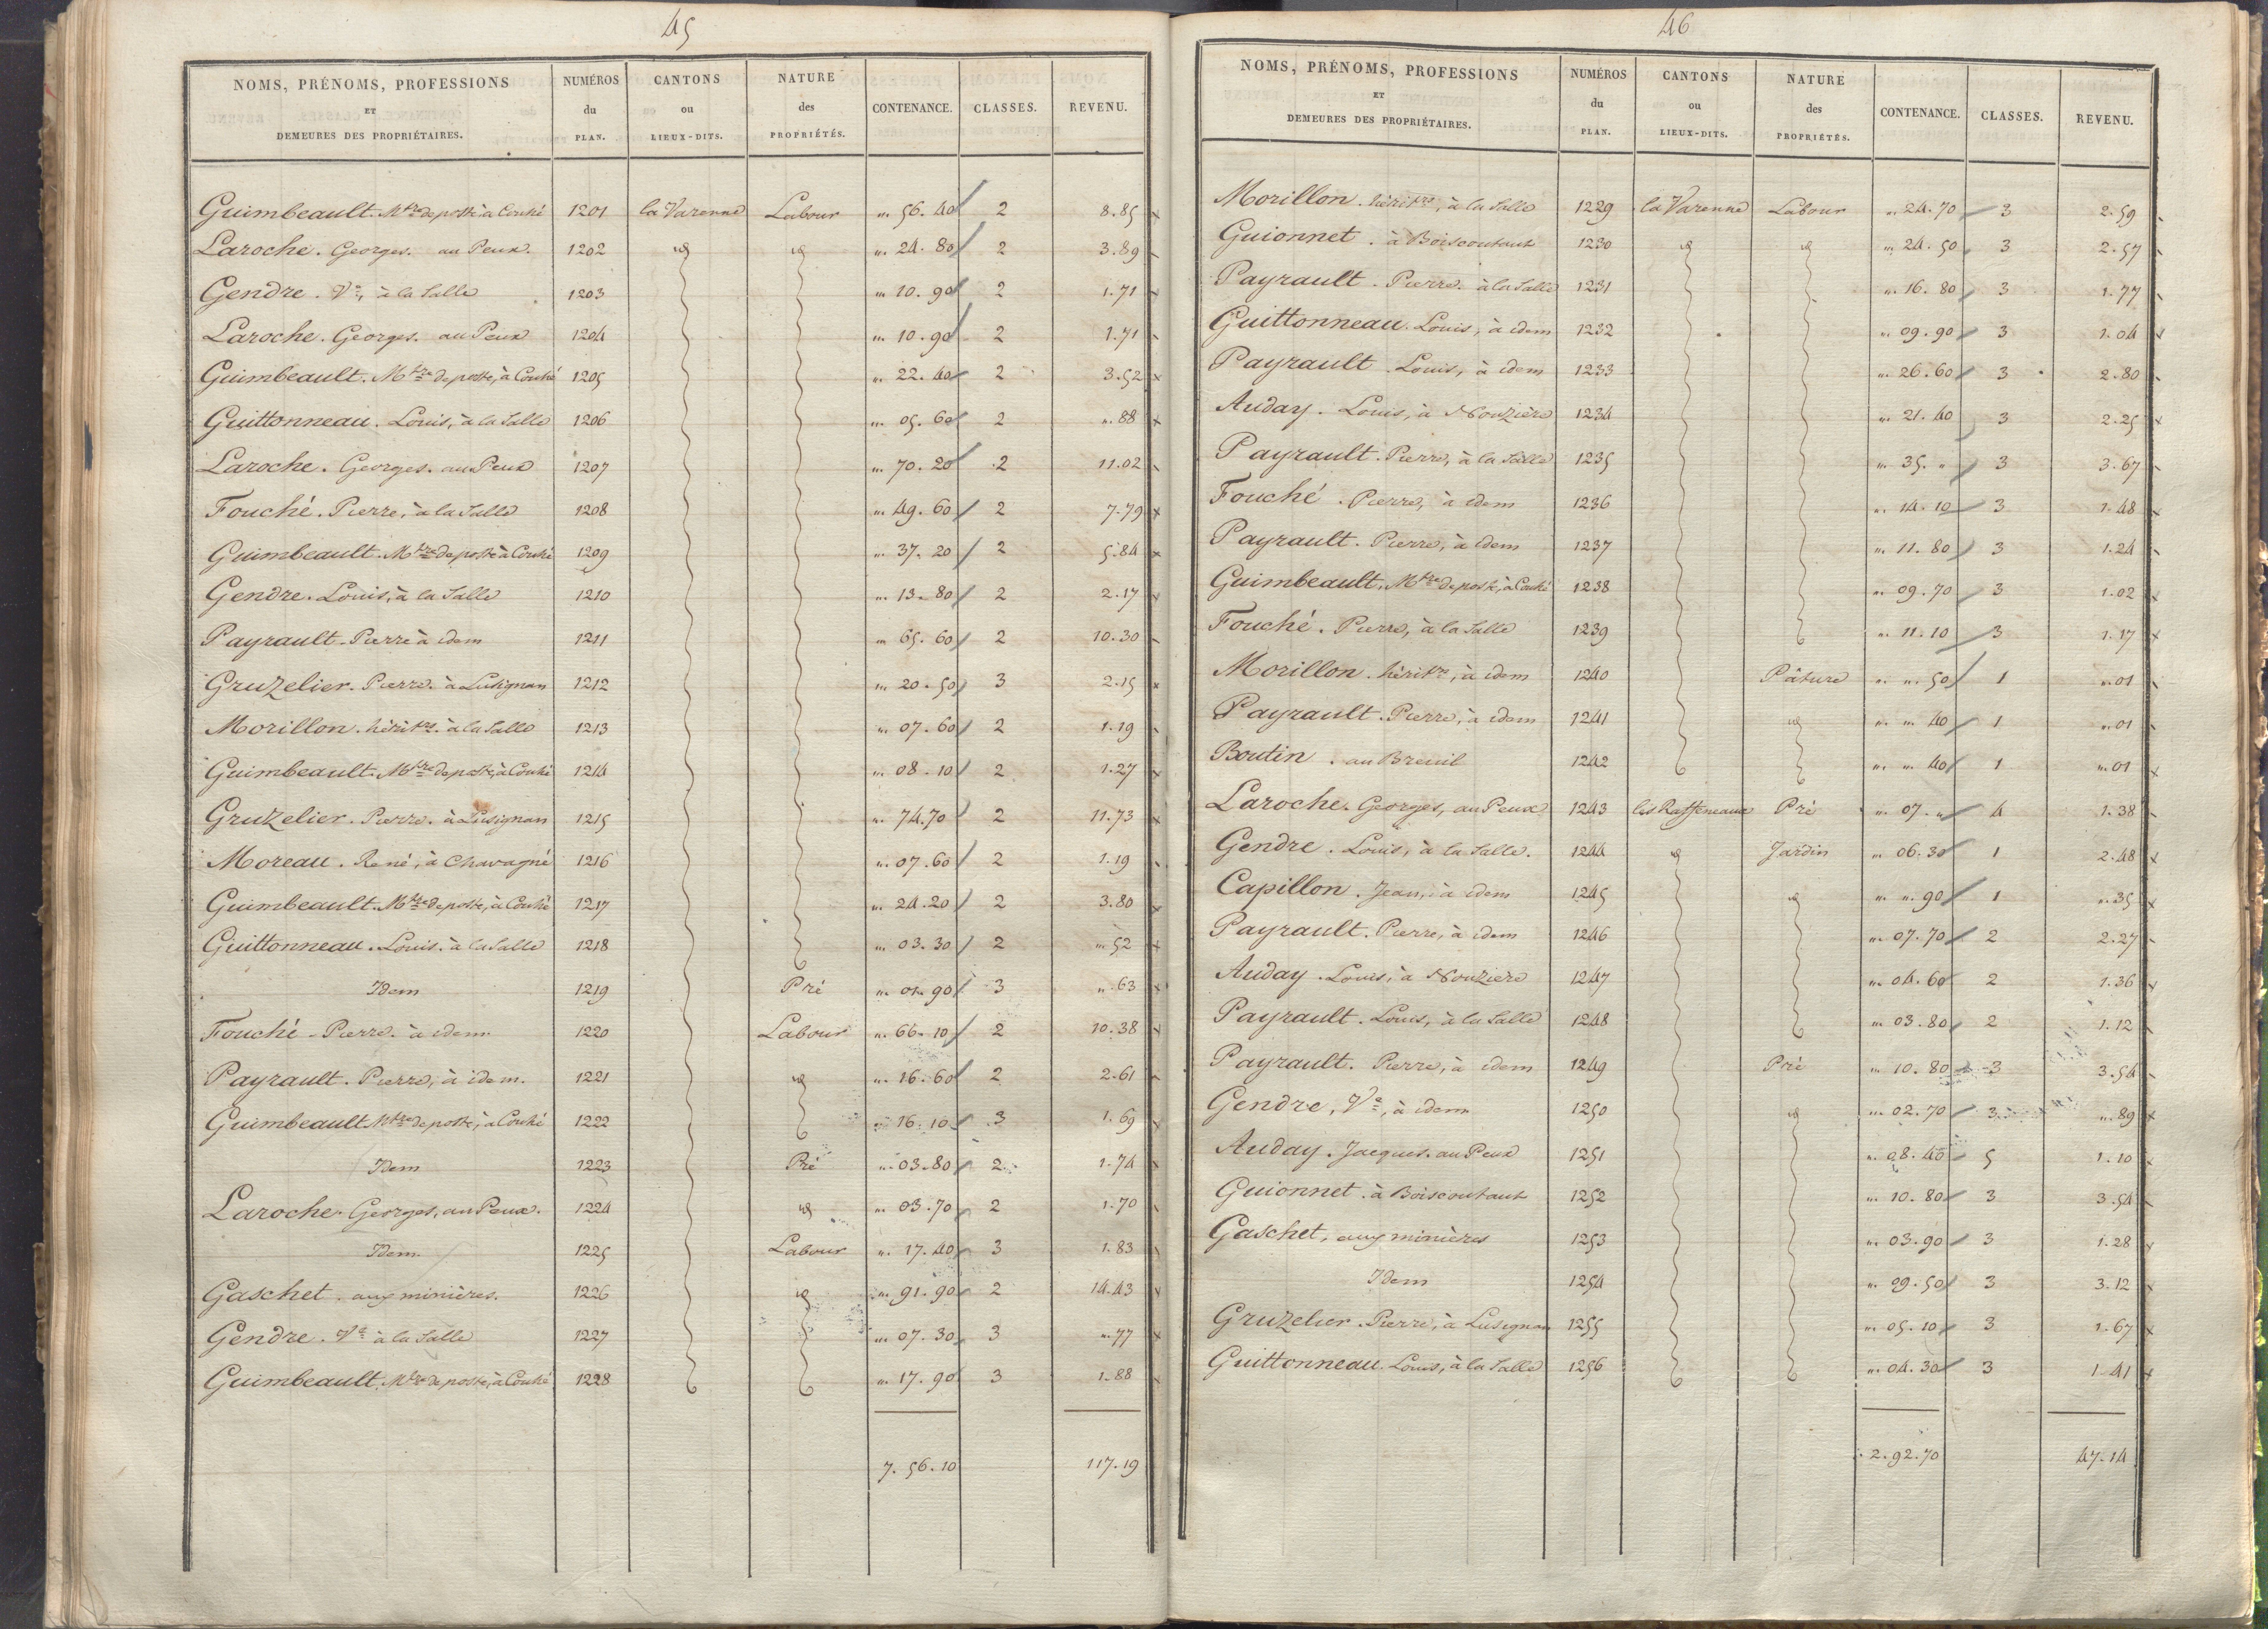 45
NOMS, PRÉNOMS, PROFESSIONS ET DEMEURES DES PROPRIÉTAIRES. NUMÉROS du PLAN. CANTONS ou LIEUX-DITS. NATURE des PROPRIÉTÉS. CONTENANCE. CLASSES. REVENU.
Guimbeault. Mtre de poste à Couhé 1201 la Varenne Labour „. 56. 40 2 8.85
Laroche. Georges. au Peux. 1202 id id „. 24. 80 2 3.89
Gendre. Ve, à la Salle 1203 „. 10. 90 2 1.71
Laroche. Georges. au Peux 1204 „. 10. 90 2 1.71
Guimbeault. Mtre de poste, à Couhé 1205 „. 22. 40 2 3.52
Guittonneau. Louis, à la Salle 1206 „. 05. 60 2 „. 88
Laroche. Georges. au Peux 1207 „. 70. 20 2 11.02
Fouché. Pierre, à la Salle 1208 „. 49. 60 2 7.79
Guimbeault. Mtre de poste à Couhé 1209 „. 37. 20 2 5.84
Gendre. Louis, à la Salle 1210 „. 13. 80 2 2.17
Payrault. Pierre à idem 1211 „. 65. 60 2 10.30
Gruzelier. Pierre. à Lusignan 1212 „. 20. 50 3 2.15
Morillon. héritrs. à la Salle 1213 „. 07. 60 2 1.19
Guimbeault. Mtre de poste, à Couhé 1214 „. 08. 10 2 1.27
Gruzelier. Pierre. à Lusignan 1215 „. 74. 70 2 11.73
Moreau. René, à Chavagné 1216 „. 07. 60 2 1.19
Guimbeault. Mtre de poste, à Couhé 1217 „. 24. 20 2 3.80
Guittonneau. Louis. à la Salle 1218 „. 03. 30 2 „. 52
Idem 1219 Pré „. 01. 90 3 „. 63
Fouché. Pierre. à idem 1220 Labour „. 66. 10 2 10.38
Payrault. Pierre, à idem. 1221 id „. 16. 60 2 2.61
Guimbeault Mtre de poste, à Couhé 1222 „. 16. 10 3 1.69
Idem 1223 Pré „. 03. 80 2 1.74
Laroche. Georges, au Peux. 1224 id „. 03. 70 2 1.70
Idem. 1225 Labour „. 17. 40 3 1.83
Gaschet. aux minières. 1226 id „. 91. 90 2 14.43
Gendre. Ve à la Salle 1227 „. 07. 30 3 „. 77
Guimbeault. Mtre de poste, à Couhé 1228 „. 17. 90 3 1.88
7. 56. 10 117.19
46
NOMS, PRÉNOMS, PROFESSIONS ET DEMEURES DES PROPRIÉTAIRES. NUMÉROS du PLAN. CANTONS ou LIEUX-DITS. NATURE des PROPRIÉTÉS. CONTENANCE. CLASSES. REVENU.
Morillon. héritrs, à la Salle 1229 la Varenne Labour „. 24. 70 3 2.59
Guionnet. à Boiscoutant 1230 id id „. 24. 50 3 2.57
Payrault. Pierre. à la Salle 1231 „. 16. 80 3 1.77
Guittonneau. Louis, à idem 1232 „. 09. 90 3 1.04
Payrault. Louis, à idem 1233 „. 26. 60 3 2.80
Auday. Louis, à Nouzière 1234 „. 21. 40 3 2.25
Payrault. Pierre, à la Salle 1235 „. 35. „ 3 3.67
Fouché. Pierre, à idem 1236 „. 14. 10 3 1.48
Payrault. Pierre, à idem 1237 „. 11. 80 3 1.24
Guimbeault. Mtre de poste, à Couhé 1238 „. 09. 70 3 1.02
Fouché. Pierre, à la Salle 1239 „. 11. 10 3 1.17
Morillon. héritrs, à idem 1240 Pâture „. „. 50 1 „. 01
Payrault. Pierre, à idem 1241 id „. „. 40 1 „. 01
Boutin. au Breuil 1242 „. „. 40 1 „. 01
Laroche. Georges, au Peux 1243 les Raffeneaux Pré „. 07. „ 4 1.38
Gendre. Louis, à la Salle. 1244 id Jardin „. 06. 30 1 2.48
Capillon. Jean, à idem 1245 id „. „. 90 1 „. 35
Payrault. Pierre, à idem 1246 „. 07. 70 2 2.27
Auday. Louis, à Nouzière 1247 „. 04. 60 2 1.36
Payrault. Louis, à la Salle 1248 „. 03. 80 2 1.12
Payrault. Pierre, à idem 1249 Pré „. 10. 80 3 3.54
Gendre, Ve, à idem 1250 id „. 02. 70 3 „. 89
Auday. Jacques. au Peux 1251 „. 08. 40 5 1.10
Guionnet. à Boiscoutant 1252 „. 10. 80 3 3.54
Gaschet, aux minières 1253 „. 03. 90 3 1.28
Idem 1254 „. 09. 50 3 3.12
Gruzelier. Pierre, à Lusignan 1255 „. 05. 10 3 1.67
Guittonneau. Louis, à la Salle 1256 „. 04. 30 3 1.41
2. 92. 70 47.14